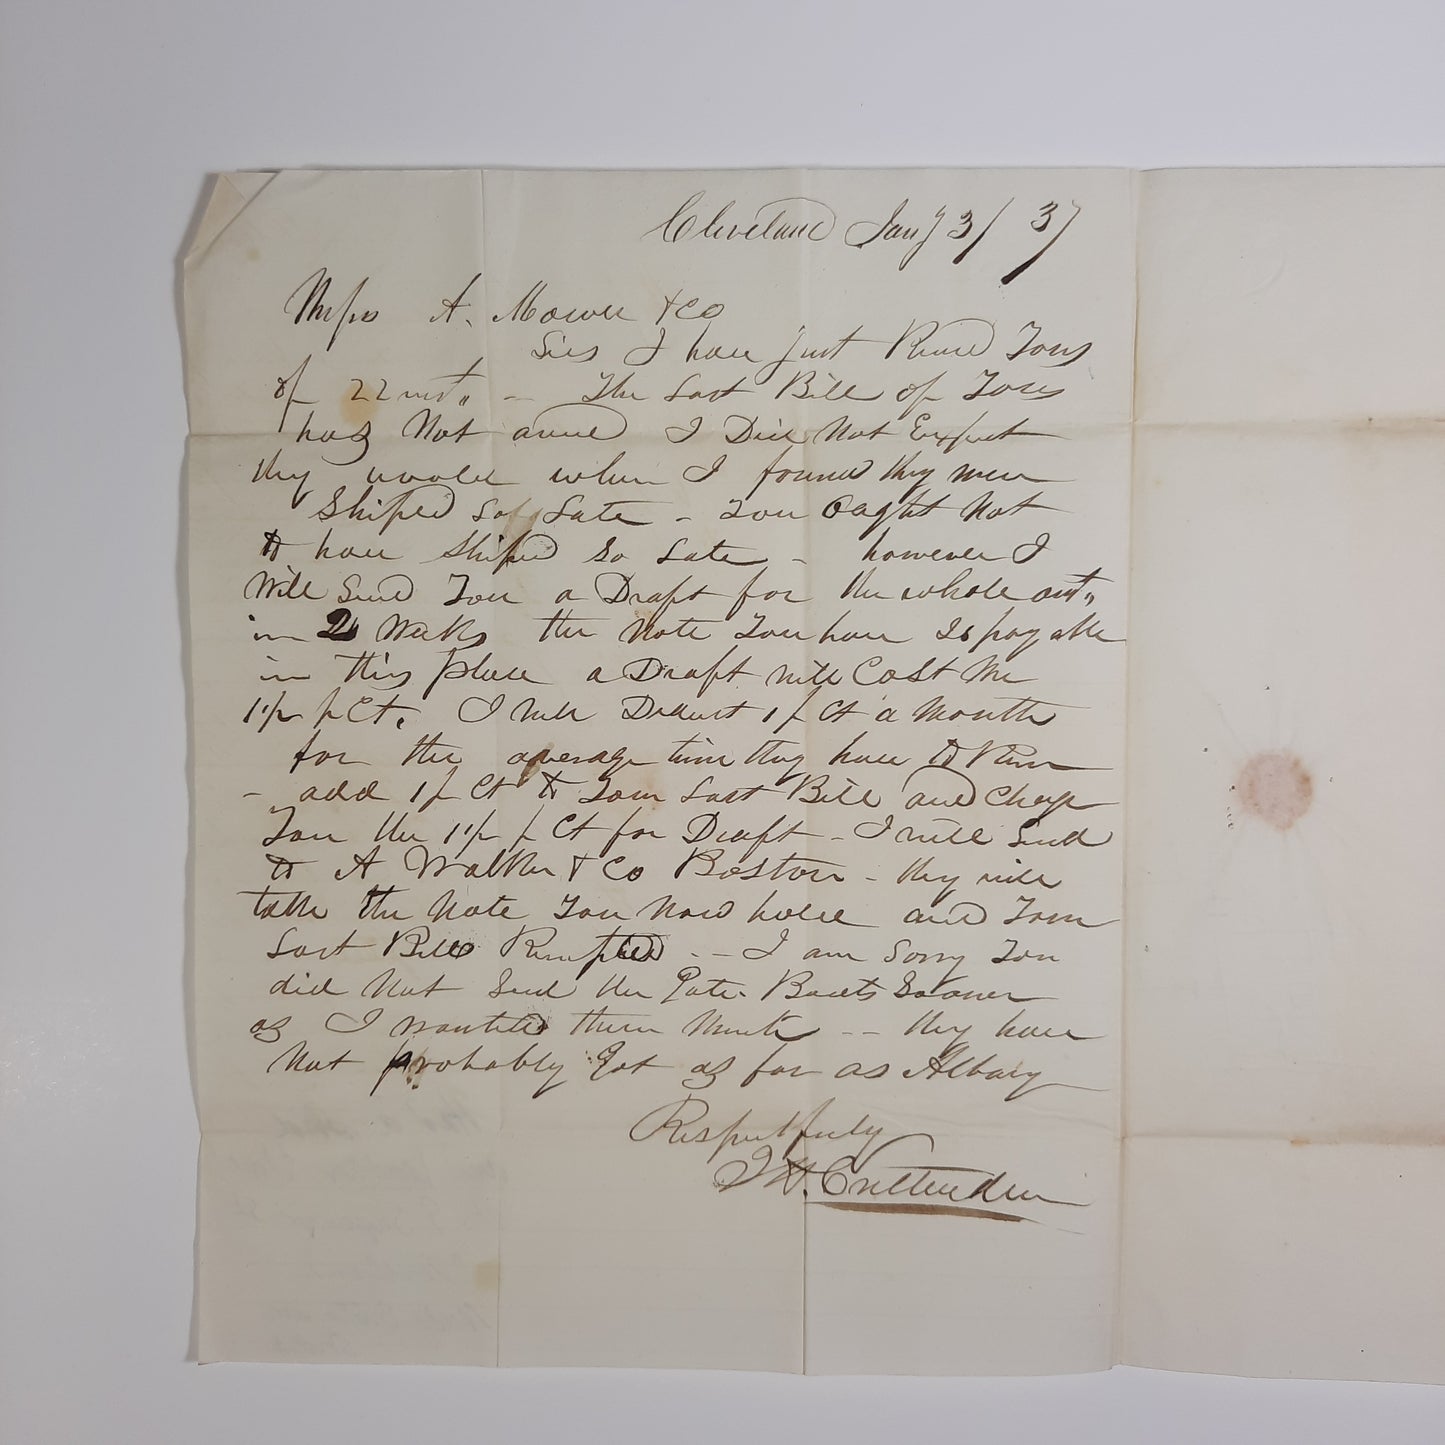 Cleveland Jany 3/ 37
Messrs A. Mower & Co
Sirs I have just Recd Yours
of 22 inst,, - The Last Bill of Yours
has Not arrived I Did Not Expect
they would when I found they were
Shiped So Late - You Ought Not
to have Shiped So Late - however I
Will Send You a Draft for the whole amt,,
in 2 Weeks the Note You have Is payable
in this place a Draft will Cost Me
p Ct. I will Deduct 1 p Ct a Month
for the average time they have to Run
- add 1 p Ct to Your Last Bill and Charge
You the p Ct for Draft - I will Send
to A Walker & Co Boston - they will
take the Note You Now hold and Your
Last Bill Receipted - - I am Sorry You
did Not Send the Boots Sooner
as I wanted them Much - - they have
Not probably Got as far as Albany
Respectfully
Crittenden